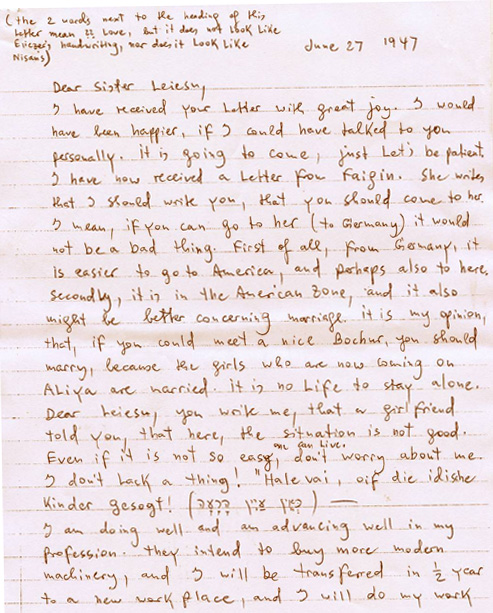 (the 2 words next to the heading of this
letter mean Love, but it does not look like
Eliezer's handwriting, nor does it look like
Nisan's)
June 27 1947
Dear Sister
I have received your letter with great joy. I would
have been happier, if I could have talked to you
personally. it is going to come, just let's be patient.
I have now received a letter from Faigin. She writes
that I should write you, that you should come to her.
I mean, if you can go to her (to Germany) it would
not be a bad thing. First of all, from Germany, it
is easier to go to America, and perhaps also to here.
secondly, it is in the American zone, and it also
might be better concerning marriage. it is my opinion,
that, if you could meet a nice Bochur, you should
marry, because the girls who are now coming on
Aliya are married. it is no life to stay alone.
Dear you write me, that a girl friend
told you, that here, the situation is not good.
Even if it is not so easy, one can live. don't worry about me.
I don't lack a thing! "Halevai, oif die idishe
Kinder gesogt! ( ) —
I am doing well and am advancing well in my
profession. they intend to buy more modern
machinery, and I will be transferred in ½ year
to a new work place, and I will do my work